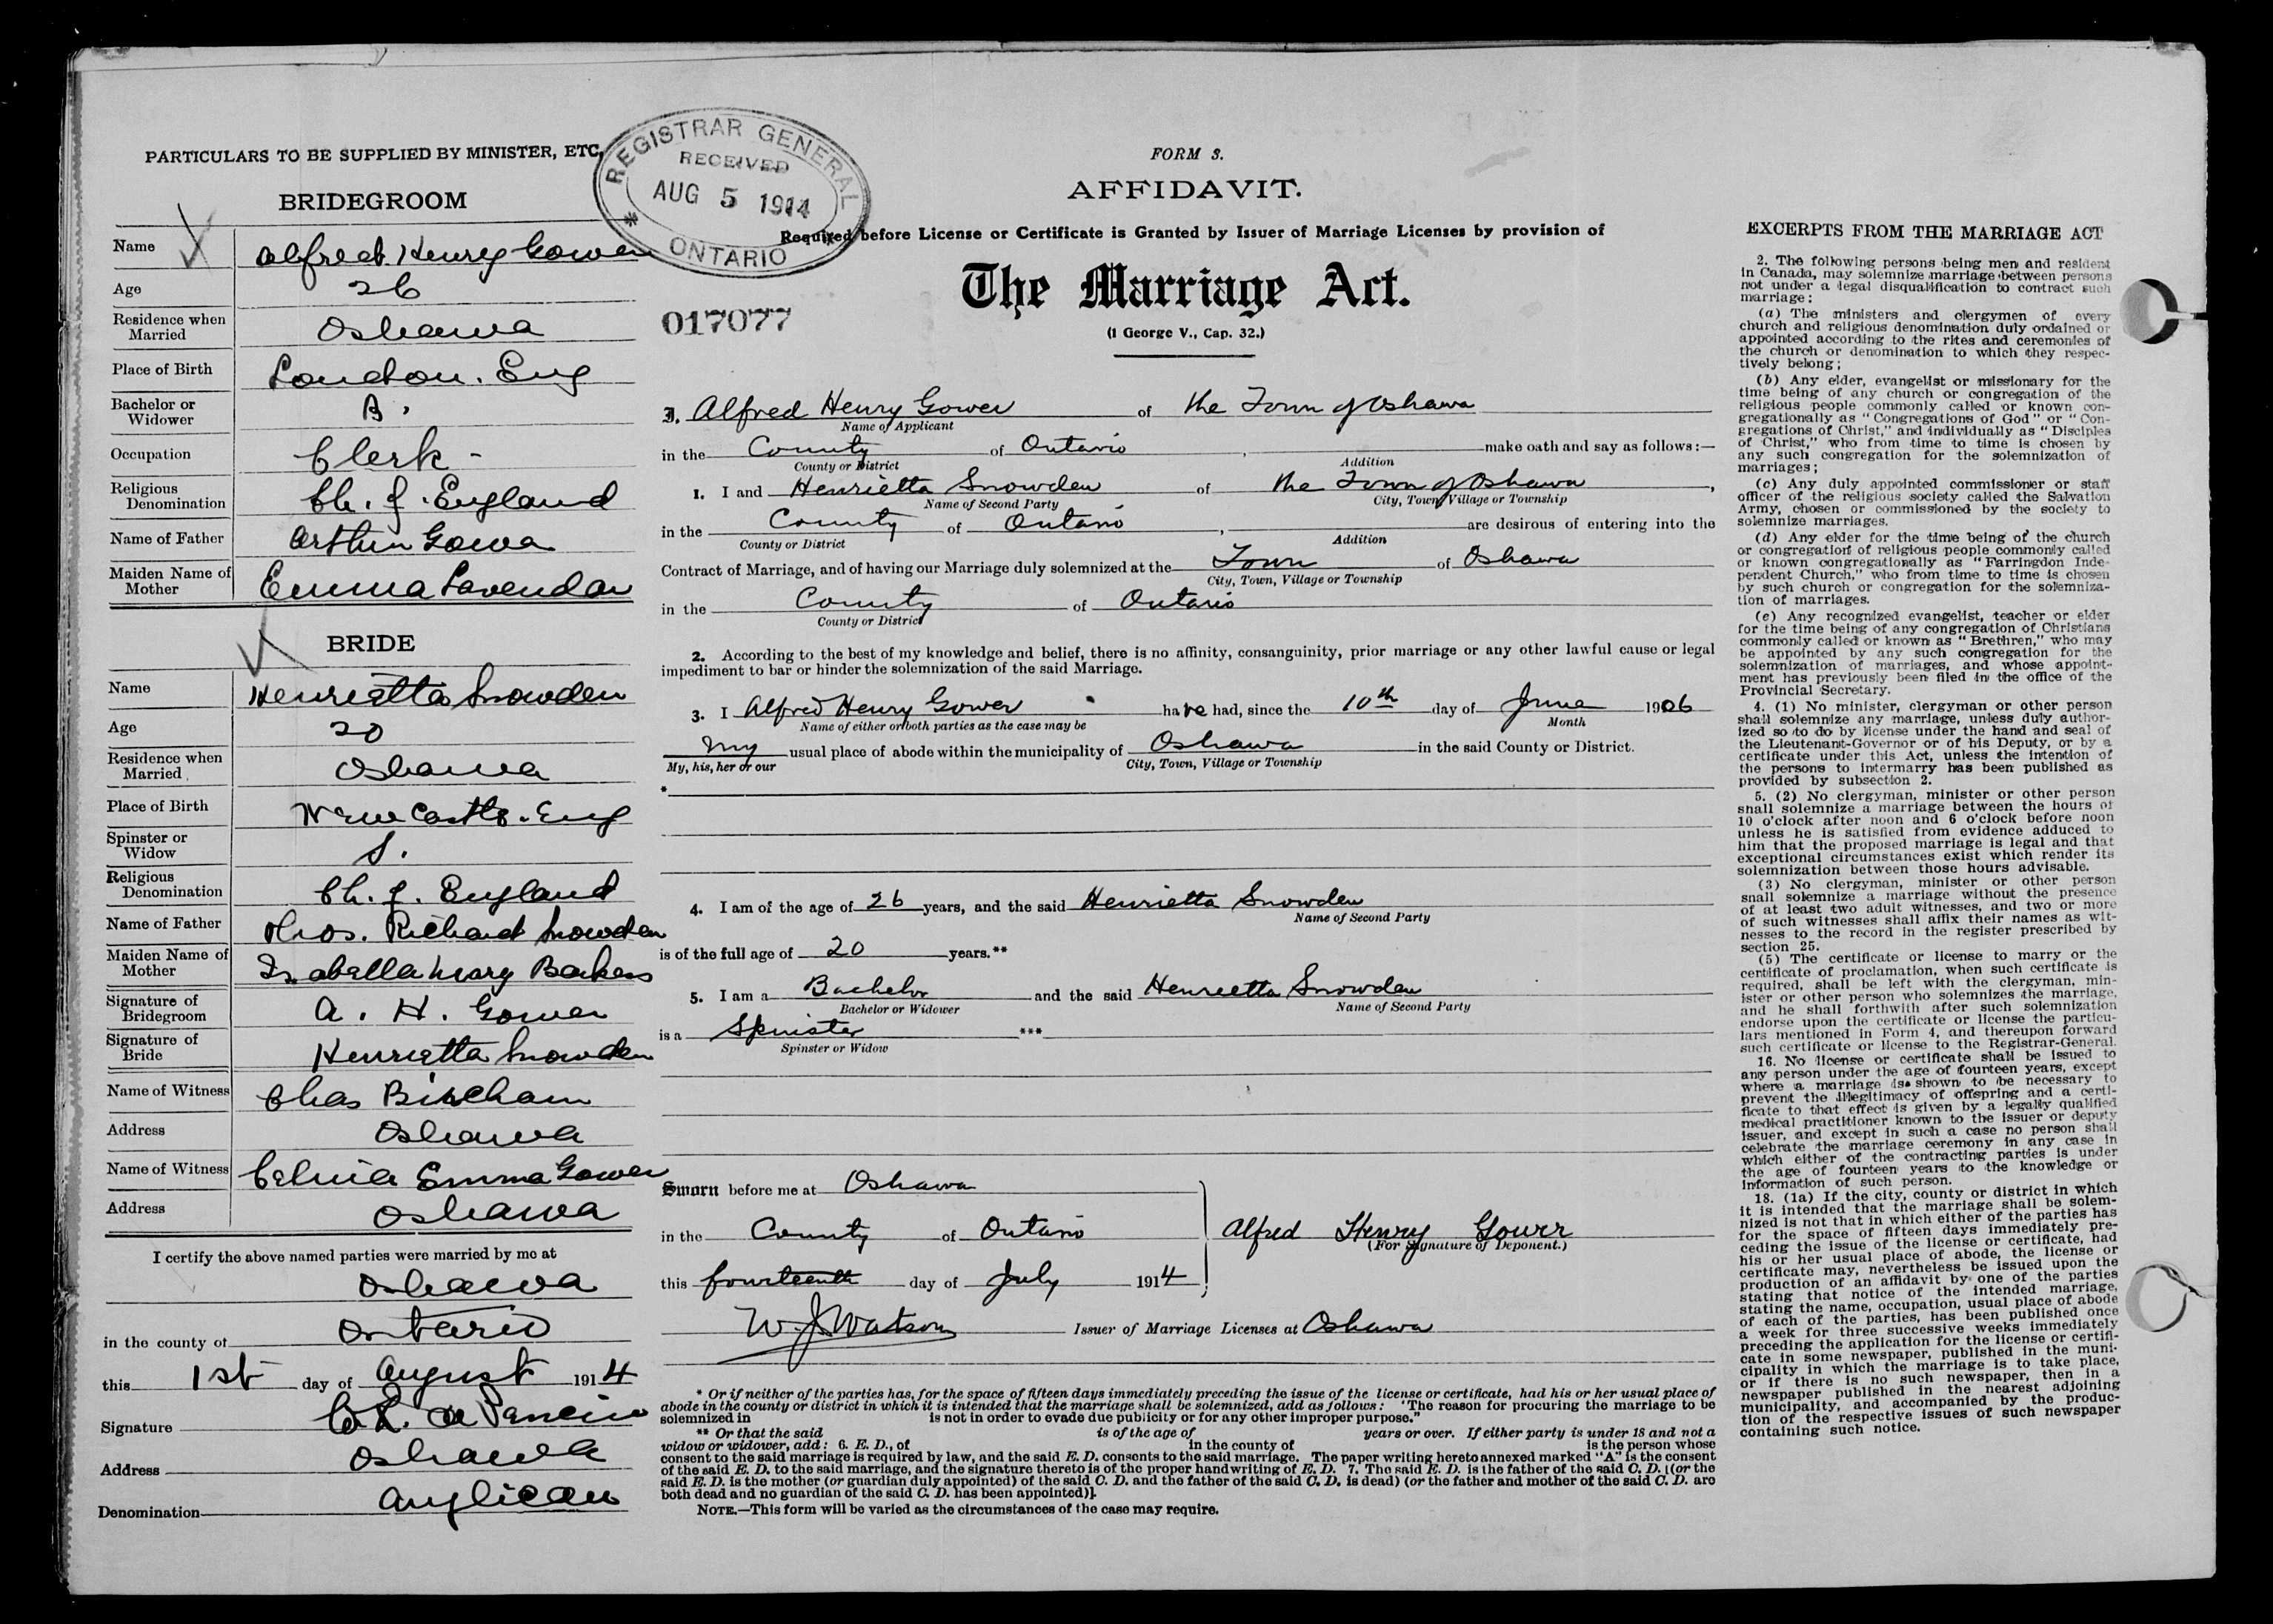 PARTICULARS TO BE SUPPLIED BY MINISTER, ETC.
BRIDEGROOM
Name Alfred Henry Gower
Age 26
Residence when Married Oshawa
Place of Birth London. Eng
Bachelor or Widower B.
Occupation Clerk -
Religious Denomination Ch. of England
Name of Father Arthur Gower
Maiden Name of Mother Emma Lavender
BRIDE
Name Henrietta Snowden
Age 20
Residence when Married Oshawa
Place of Birth New Castle. Eng
Spinster or Widow S.
Religious Denomination Ch. of. England
Name of Father Thos. Richard Snowden
Maiden Name of Mother Isabella Mary
Signature of Bridegroom A. H. Gower
Signature of Bride Henrietta Snowden
Name of Witness Chas
Address Oshawa
Name of Witness Emma Gower
Address Oshawa
I certify the above named parties were married by me at
Oshawa
in the county of Ontario
this 1st day of August 1914
Signature
Address Oshawa
Denomination Anglican
REGISTRAR GENERAL
RECEIVED
AUG 5 1914
ONTARIO
017077
FORM 3.
AFFIDAVIT.
Required before License or Certificate is Granted by Issuer of Marriage Licenses by provision of
The Marriage Act.
(1 George V., Cap. 32.)
I, Alfred Henry Gower of the Town of Oshawa
Name of Applicant
in the County of Ontario, make oath and say as follows:—
County or District Addition
1. I and Henrietta Snowden of the Town of Oshawa,
Name of Second Party City, Town, Village or Township
in the County of Ontario, are desirous of entering into the
County or District Addition
Contract of Marriage, and of having our Marriage duly solemnized at the Town of Oshawa
City, Town, Village or Township
in the County of Ontario
County or District
2. According to the best of my knowledge and belief, there is no affinity, consanguinity, prior marriage or any other lawful cause or legal
impediment to bar or hinder the solemnization of the said Marriage.
3. I Alfred Henry Gower have had, since the 10th day of June 1906
Name of either or both parties as the case may be Month
My usual place of abode within the municipality of Oshawa in the said County or District.
My, his, her or our City, Town, Village or Township
*
4. I am of the age of 26 years, and the said Henrietta Snowden
Name of Second Party
is of the full age of 20 years.**
5. I am a Bachelor and the said Henrietta Snowden
Bachelor or Widower Name of Second Party
is a Spinster ***
Spinster or Widow
Sworn before me at Oshawa
in the County of Ontario
Alfred Henry Gower
(For Signature of Deponent.)
this fourteenth day of July 1914
W. J. Watson Issuer of Marriage Licenses at Oshawa
* Or if neither of the parties has, for the space of fifteen days immediately preceding the issue of the license or certificate, had his or her usual place of
abode in the county or district in which it is intended that the marriage shall be solemnized, add as follows: "The reason for procuring the marriage to be
solemnized in is not in order to evade due publicity or for any other improper purpose."
** Or that the said is of the age of years or over. If either party is under 18 and not a
widow or widower, add: 6. E. D., of in the county of is the person whose
consent to the said marriage is required by law, and the said E. D. consents to the said marriage. The paper writing hereto annexed marked "A" is the consent
of the said E. D. to the said marriage, and the signature thereto is of the proper handwriting of E. D. 7. The said E. D. is the father of the said C. D. [(or the
said E. D. is the mother (or guardian duly appointed) of the said C. D. and the father of the said C. D. is dead) (or the father and mother of the said C. D. are
both dead and no guardian of the said C. D. has been appointed)].
NOTE.—This form will be varied as the circumstances of the case may require.
EXCERPTS FROM THE MARRIAGE ACT
2. The following persons being men and resident
in Canada, may solemnize marriage between persons
not under a legal disqualification to contract such
marriage:
(a) The ministers and clergymen of every
church and religious denomination duly ordained or
appointed according to the rites and ceremonies of
the church or denomination to which they respec-
tively belong;
(b) Any elder, evangelist or missionary for the
time being of any church or congregation of the
religious people commonly called or known con-
gregationally as "Congregations of God" or "Con-
gregations of Christ," and individually as "Disciples
of Christ," who from time to time is chosen by
any such congregation for the solemnization of
marriages;
(c) Any duly appointed commissioner or staff
officer of the religious society called the Salvation
Army, chosen or commissioned by the society to
solemnize marriages.
(d) Any elder for the time being of the church
or congregation of religious people commonly called
or known congregationally as "Farringdon Inde-
pendent Church," who from time to time is chosen
by such church or congregation for the solemniza-
tion of marriages.
(e) Any recognized evangelist, teacher or elder
for the time being of any congregation of Christians
commonly called or known as "Brethren," who may
be appointed by any such congregation for the
solemnization of marriages, and whose appoint-
ment has previously been filed in the office of the
Provincial Secretary.
4. (1) No minister, clergyman or other person
shall solemnize any marriage, unless duly author-
ized so to do by license under the hand and seal of
the Lieutenant-Governor or of his Deputy, or by a
certificate under this Act, unless the intention of
the persons to intermarry has been published as
provided by subsection 2.
5. (2) No clergyman, minister or other person
shall solemnize a marriage between the hours of
10 o'clock after noon and 6 o'clock before noon
unless he is satisfied from evidence adduced to
him that the proposed marriage is legal and that
exceptional circumstances exist which render its
solemnization between those hours advisable.
(3) No clergyman, minister or other person
shall solemnize a marriage without the presence
of at least two adult witnesses, and two or more
of such witnesses shall affix their names as wit-
nesses to the record in the register prescribed by
section 25.
(5) The certificate or license to marry or the
certificate of proclamation, when such certificate is
required, shall be left with the clergyman, min-
ister or other person who solemnizes the marriage,
and he shall forthwith after such solemnization
endorse upon the certificate or license the particu-
lars mentioned in Form 4, and thereupon forward
such certificate or license to the Registrar-General.
16. No license or certificate shall be issued to
any person under the age of fourteen years, except
where a marriage is shown to be necessary to
prevent the illegitimacy of offspring and a certi-
ficate to that effect is given by a legally qualified
medical practitioner known to the issuer or deputy
issuer, and except in such a case no person shall
celebrate the marriage ceremony in any case in
which either of the contracting parties is under
the age of fourteen years to the knowledge or
information of such person.
18. (1a) If the city, county or district in which
it is intended that the marriage shall be solem-
nized is not that in which either of the parties has
for the space of fifteen days immediately pre-
ceding the issue of the license or certificate, had
his or her usual place of abode, the license or
certificate may, nevertheless be issued upon the
production of an affidavit by one of the parties
stating that notice of the intended marriage,
stating the name, occupation, usual place of abode
of each of the parties, has been published once
a week for three successive weeks immediately
preceding the application for the license or certifi-
cate in some newspaper, published in the muni-
cipality in which the marriage is to take place,
or if there is no such newspaper, then in a
newspaper published in the nearest adjoining
municipality, and accompanied by the produc-
tion of the respective issues of such newspaper
containing such notice.